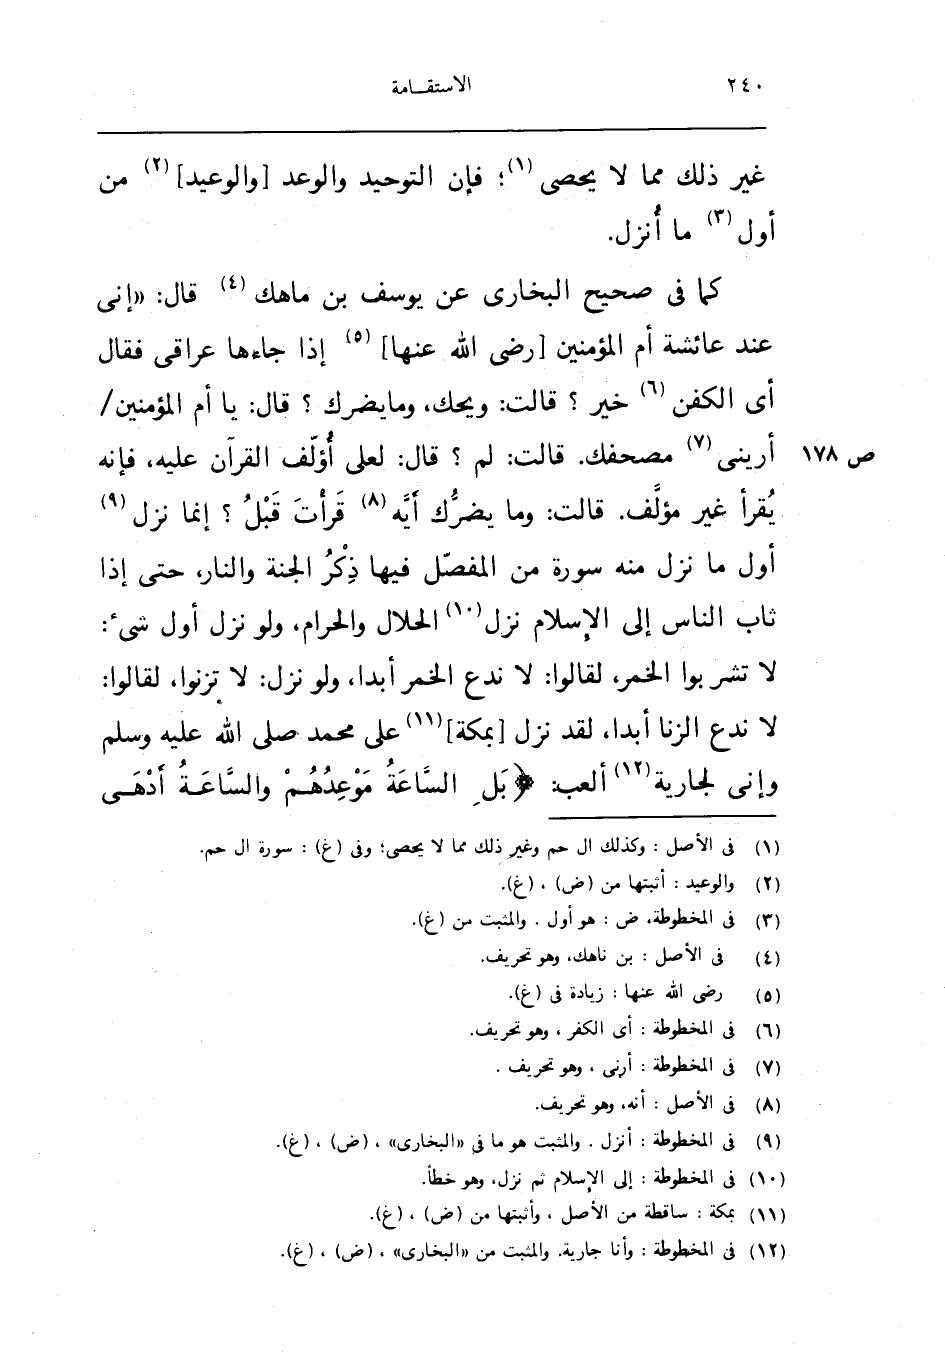 ٢٤٠ الاستقـامة
غير ذلك مما لا يحصى (١)؛ فإن التوحيد والوعد [والوعيد] (٢) من
أول (٣) ما أُنزل.
كما فى صحيح البخارى عن يوسف بن ماهك (٤) قال: «إنى
عند عائشة أم المؤمنين [رضى الله عنها] (٥) إذا جاءها عراقى فقال
أى الكفن (٦) خير ؟ قالت: ويحك، ومايضرك ؟ قال: يا أم المؤمنين/
أرينى (٧) مصحفك. قالت: لم ؟ قال: لعلى أُؤلّف القرآن عليه، فإنه ص ١٧٨
يُقرأ غير مؤلَّف. قالت: وما يضرُّك أَيَّه (٨) قَرأْتَ قَبْلُ ؟ إنما نزل (٩)
أول ما نزل منه سورة من المفصّل فيها ذِكْرُ الجنة والنار، حتى إذا
ثاب الناس إلى الإسلام نزل (١٠) الحلال والحرام، ولو نزل أول شىء:
لا تشربوا الخمر، لقالوا: لا ندع الخمر أبدا، ولو نزل: لا تزنوا، لقالوا:
لا ندع الزنا أبدا، لقد نزل [بمكة] (١١) على محمد صلى الله عليه وسلم
وإنى لجارية (١٢) ألعب: ﴿بَلِ السَّاعَةُ مَوْعِدُهُمْ والسَّاعَـةُ أَدْهَـى
(١) فى الأصل : وكذلك ال حم وغير ذلك مما لا يحصى؛ وفى (غ) : سورة ال حم.
(٢) والوعيد : أثبتها من (ض) ، (غ).
(٣) فى المخطوطة، ض : هو أول . والمثبت من (غ).
(٤) فى الأصل : بن ناهك، وهو تحريف.
(٥) رضى الله عنها : زيادة فى (غ).
(٦) فى المخطوطة : أى الكفر ، وهو تحريف.
(٧) فى المخطوطة : أرنى ، وهو تحريف .
(٨) فى الأصل : أنه، وهو تحريف.
(٩) فى المخطوطة : أنزل . والمثبت هو ما فى «البخارى» ، (ض) ، (غ).
(١٠) فى المخطوطة : إلى الإسلام ثم نزل، وهو خطأ.
(١١) بمكة : ساقطة من الأصل ، وأثبتها من (ض) ، (غ).
(١٢) فى المخطوطة : وأنا جارية. والمثبت من «البخارى» ، (ض) ، (غ).